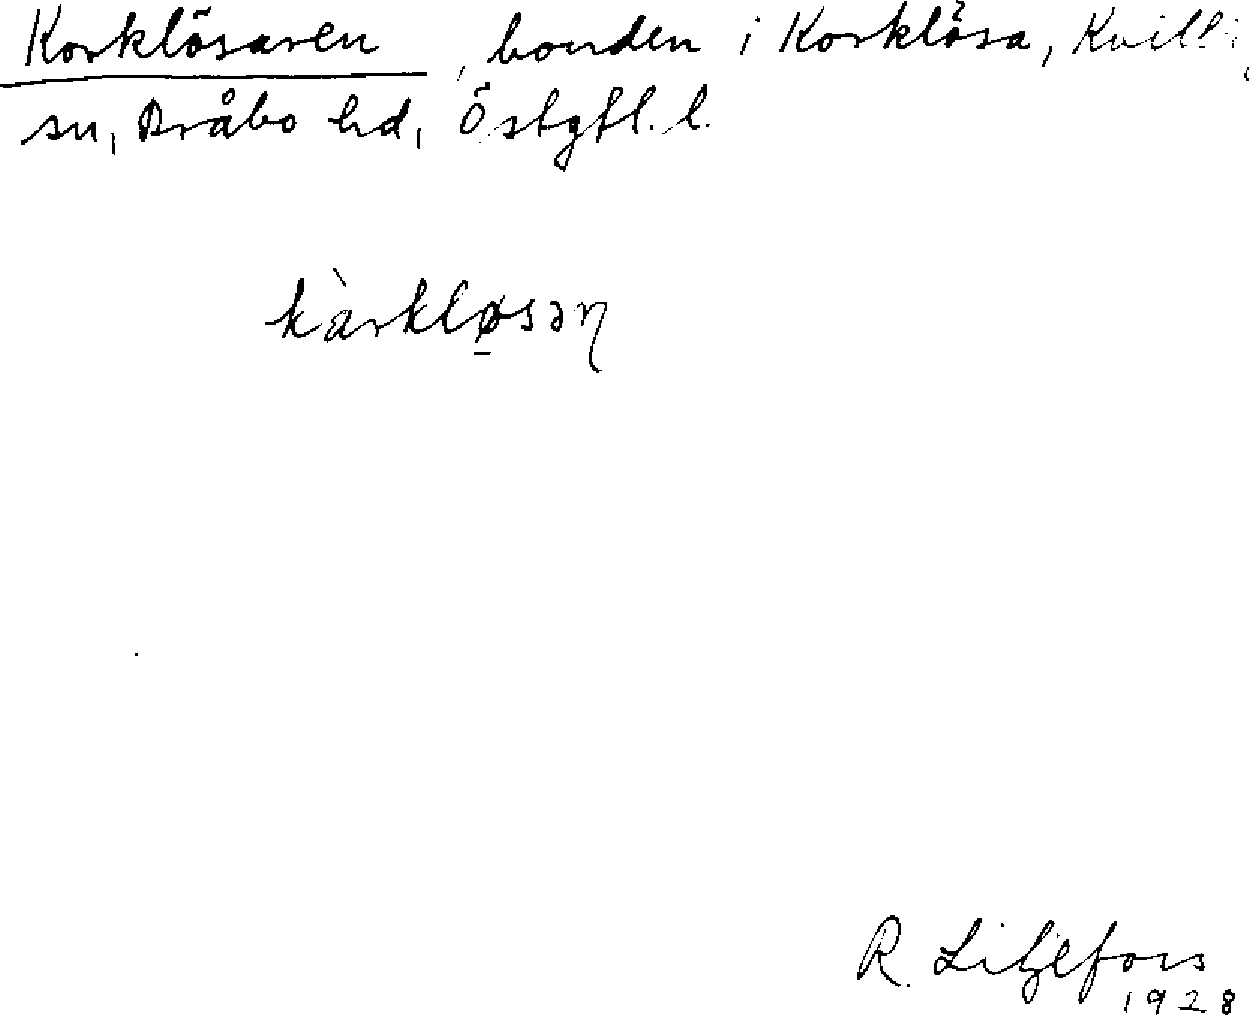 Korklösaren, bonden i Korklösa, Kvill
sn, Bråbo hd, Östgtl. l.
kàrkløsən
R. Liljefors
1928